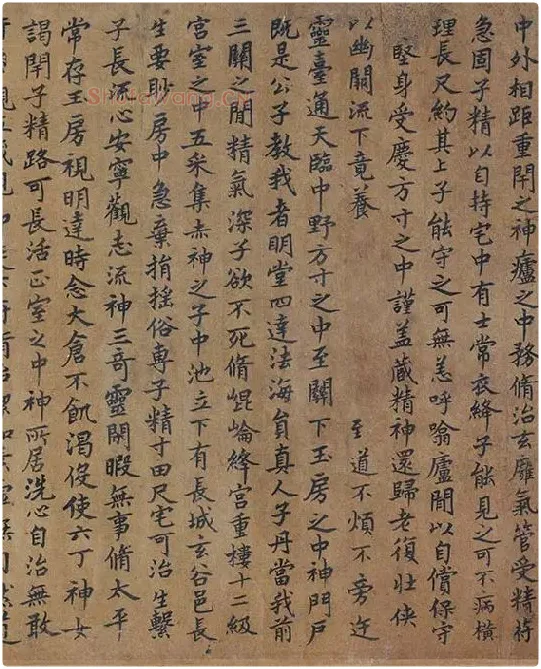 中外相距重閇之神廬之中務脩治玄廱氣管受精符
急固子精以自持宅中有士常衣絳子能見之可不病橫
理長尺約其上子能守之可無恙呼噏廬間以自償保守
堅身受慶方寸之中謹盖藏精神還歸老復壯俠
以幽闕流下竟養 至道不煩不旁迕
靈臺通天臨中野方寸之中至關下玉房之中神門戶
既是公子教我者明堂四達法海員真人子丹當我前
三關之間精氣深子欲不死脩崐崘絳宮重樓十二級
宮室之中五采集赤神之子中池立下有長城玄谷邑長
生要眇房中急棄捐搖俗專子精寸田尺宅可治生繫
子長流心安寧觀志流神三奇靈閑暇無事脩太平
常存玉房視明達時念大倉不飢渴役使六丁神女
謁閇子精路可長活正室之中神所居洗心自治無敢